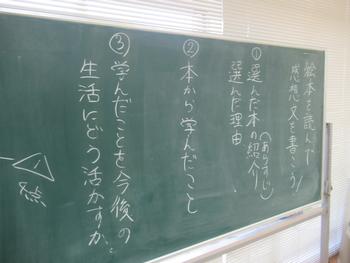 絵本を読んで
感想文を書こう!
① 選んだ本の紹介(あらすじ)
選んだ理由
② 本から学んだこと
③ 学んだことを今後の
生活にどう活かすか。
点